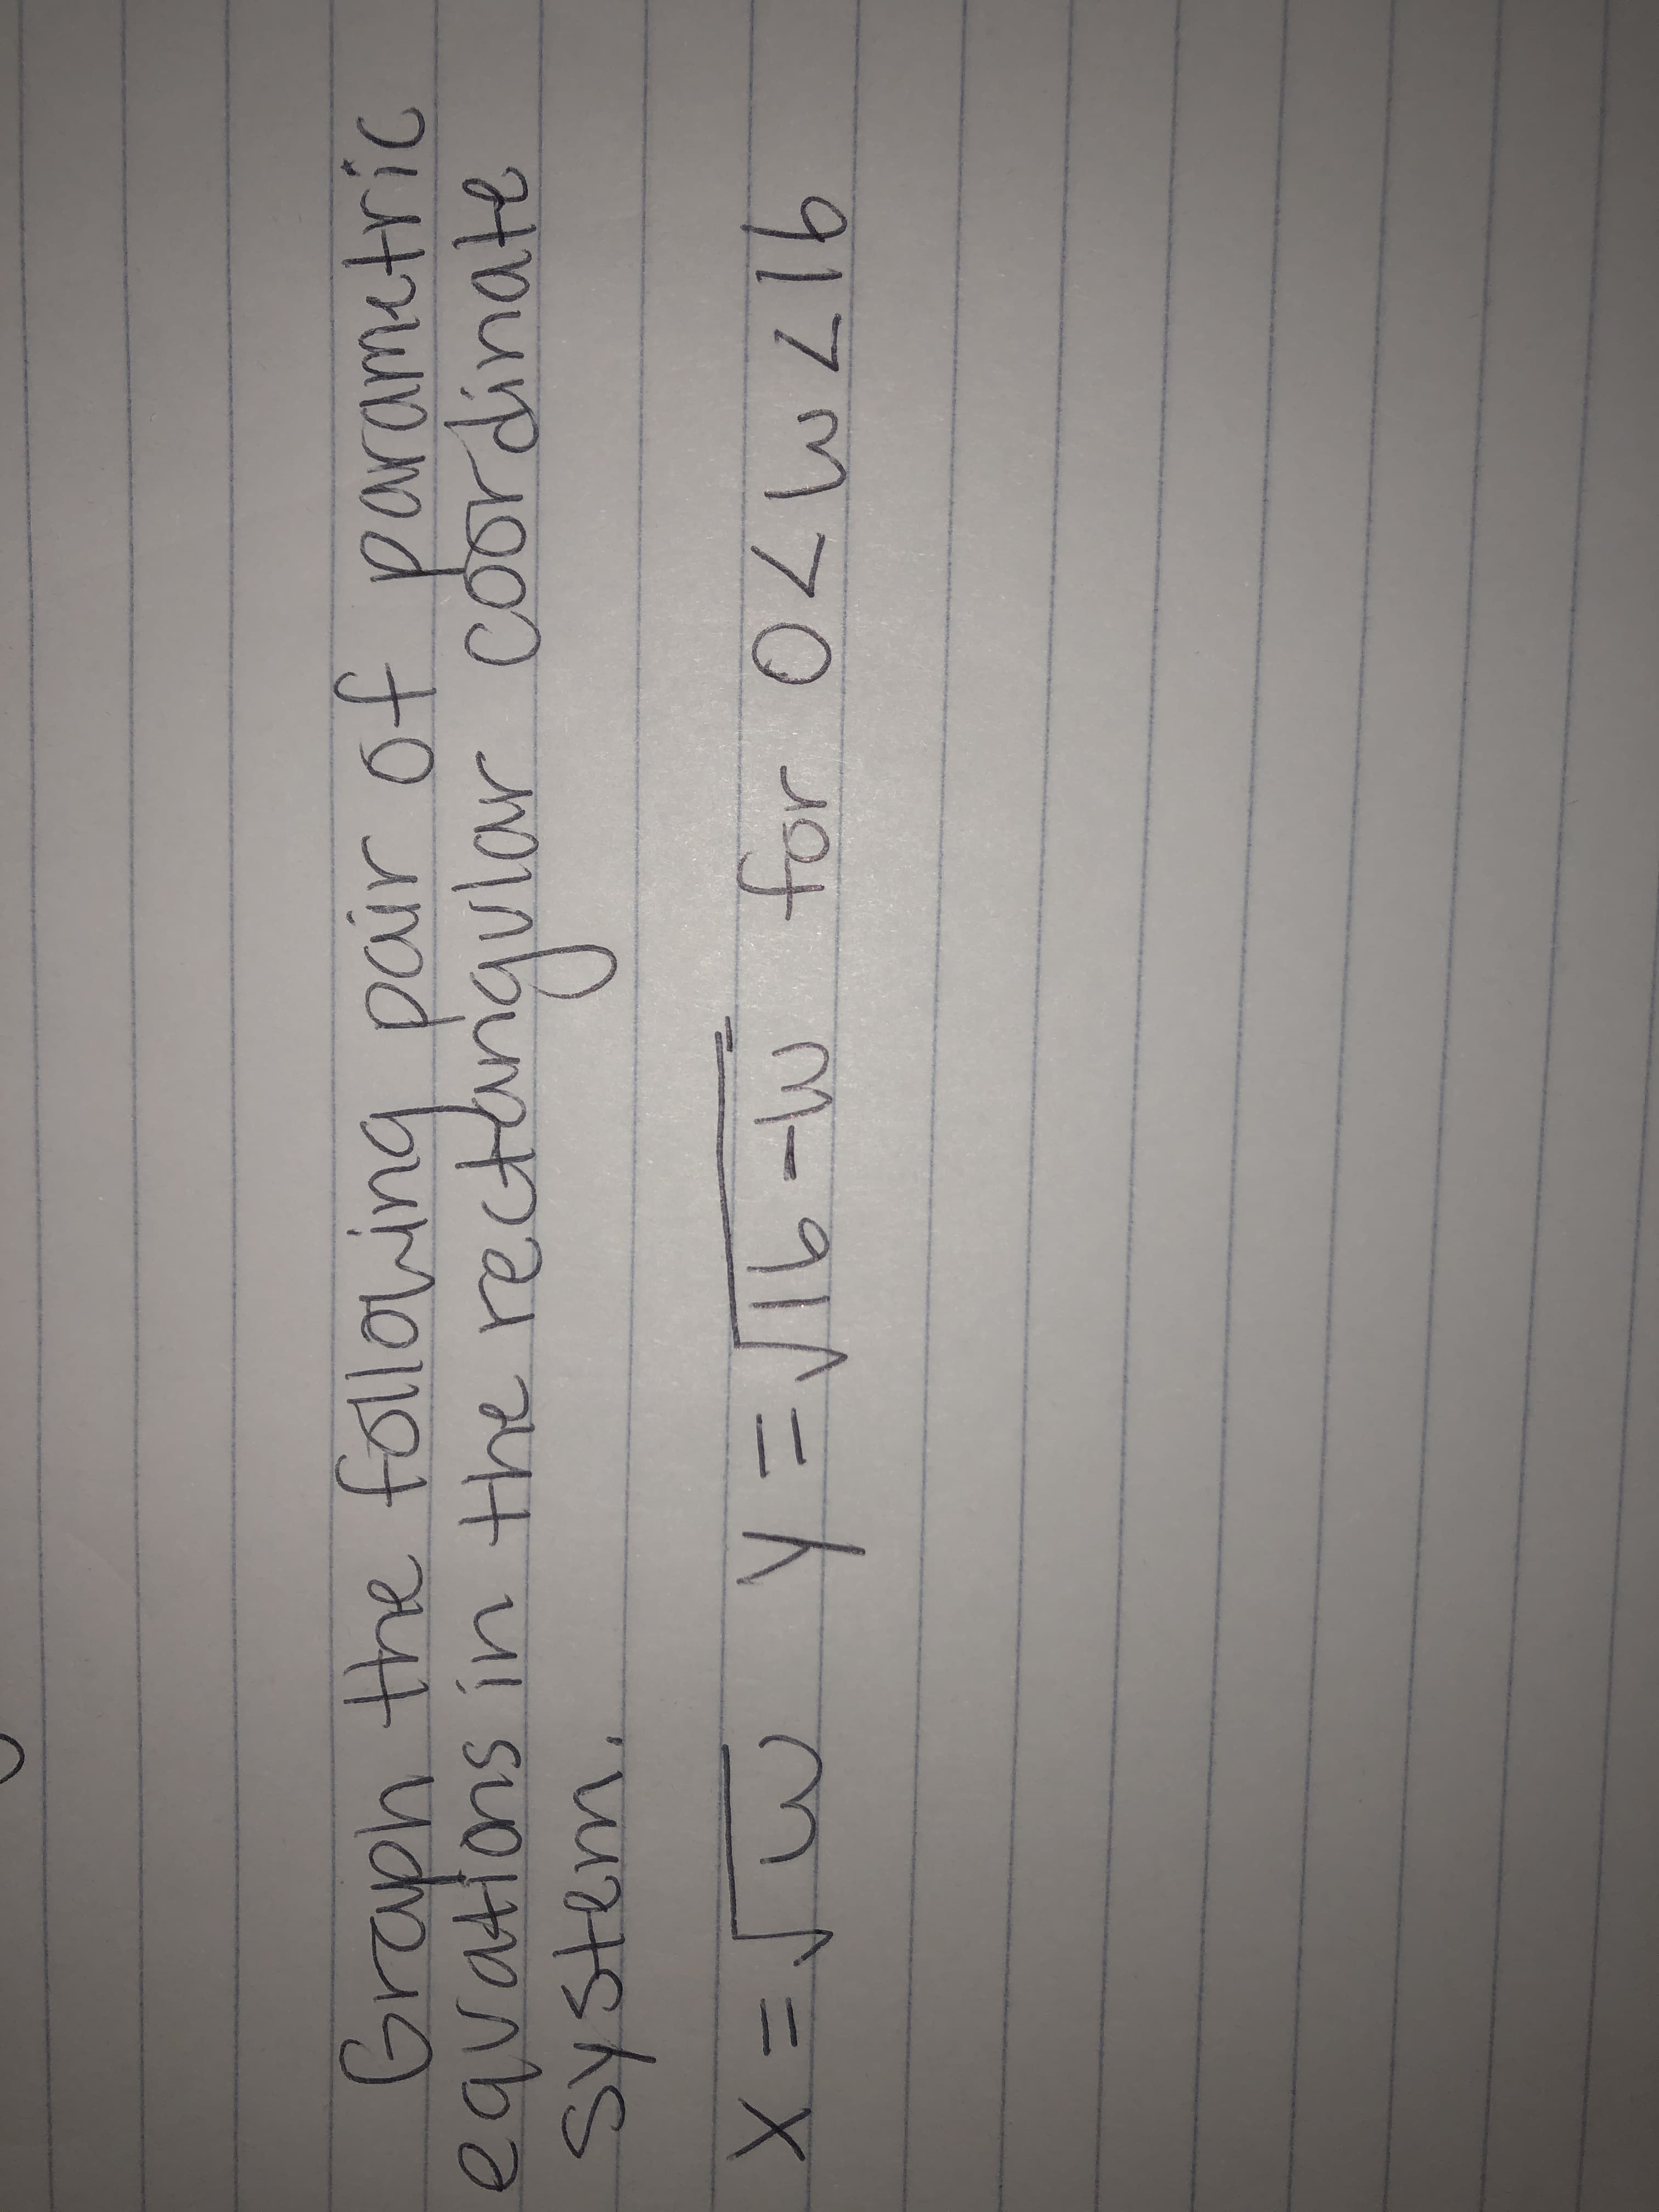 Graph the following pair of parametric
equations in the rectangular coordinate
system.
x = √w y = √16-w for 0 < w < 16